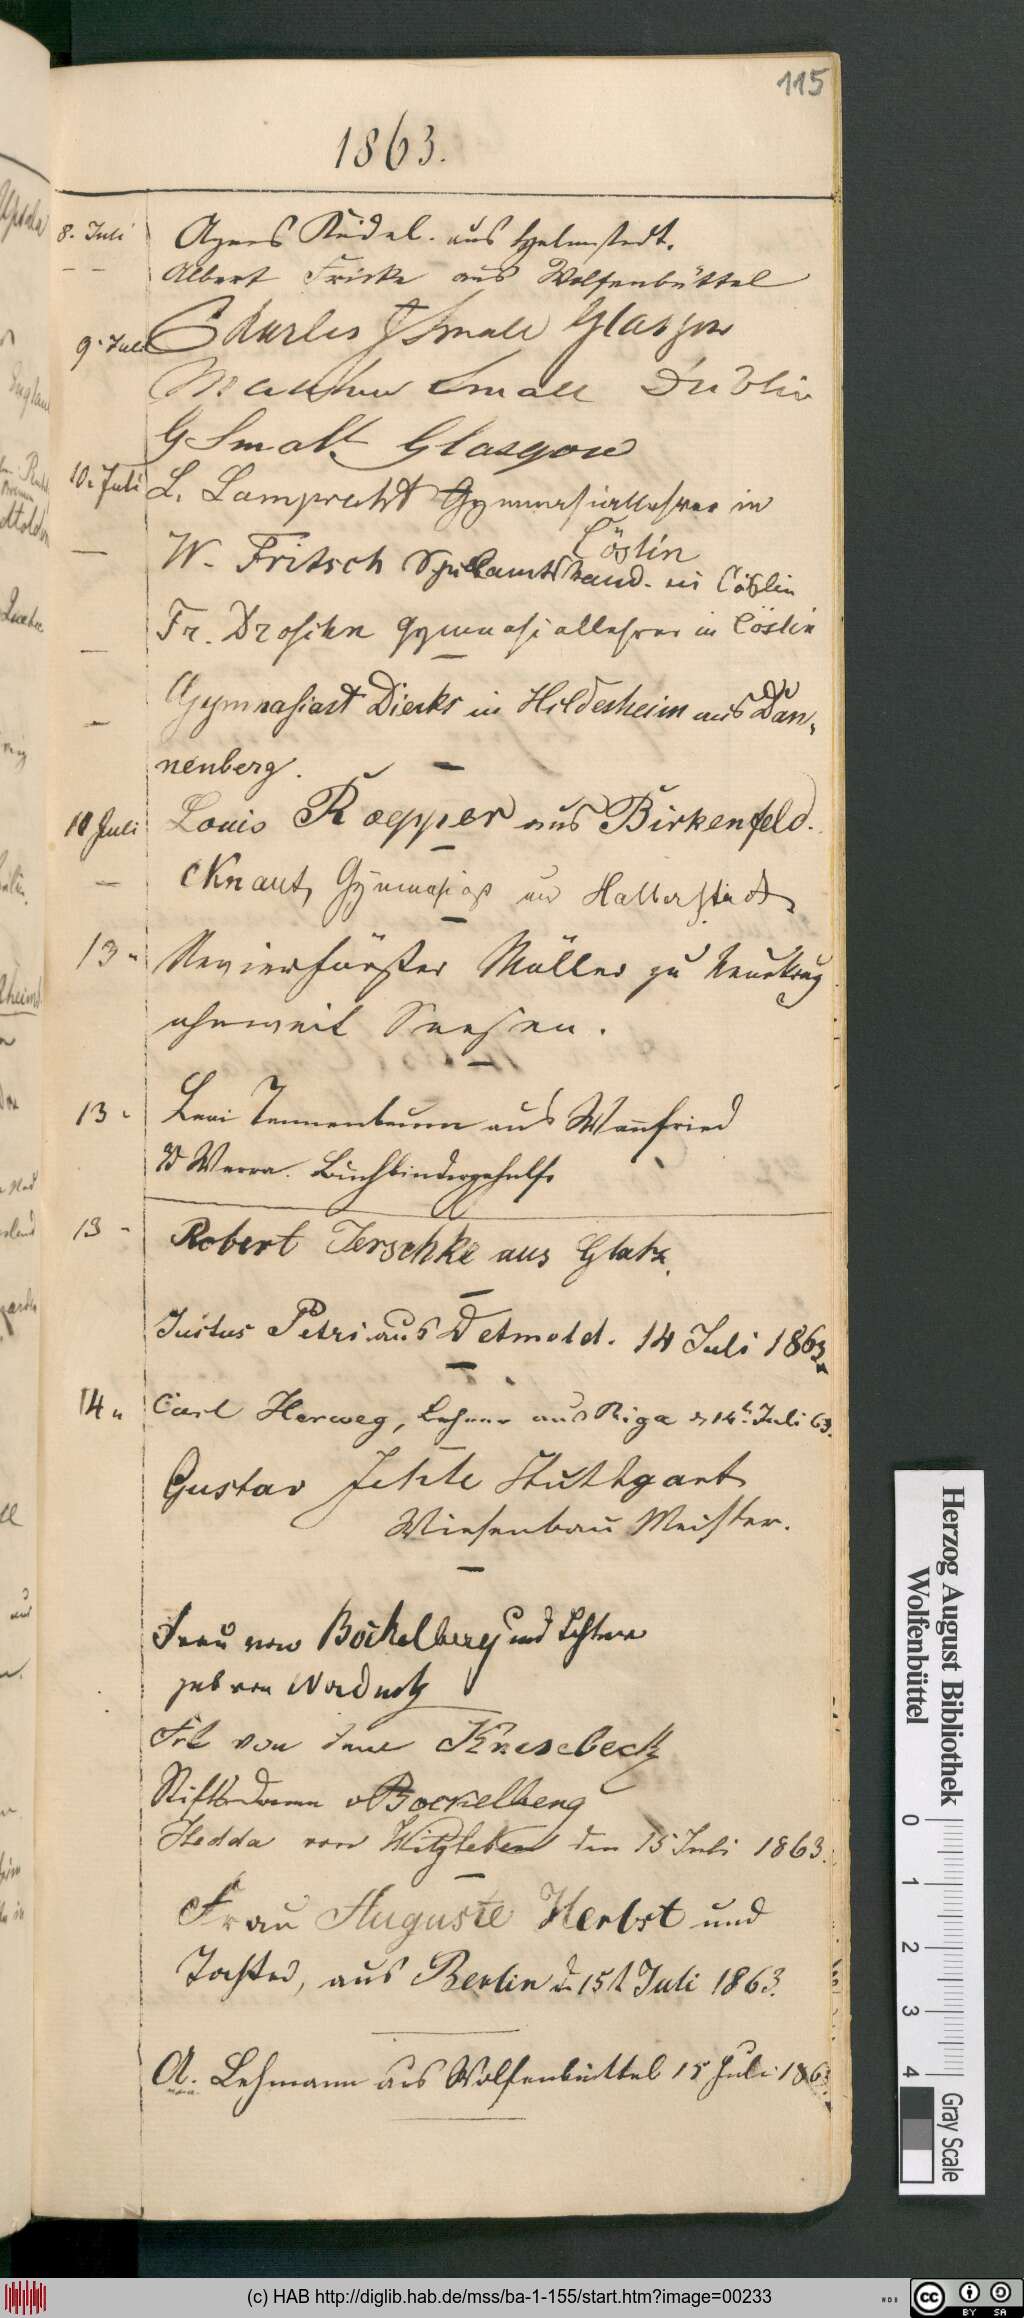 115
1863.
8. Juli Agnes Riedel. aus Helmstedt.
— — Albert Fricke aus Wolfenbüttel
9. Juli Charles J Small Glasgow
Matthew Small Dublin
G Small Glasgow
10. Juli L. Lamprecht Gymnasiallehrer in
Cöslin
— W. Fritsch in Cöslin
— Fr. Drosihn Gymnasiallehrer in Cöslin
— Gymnasiast Dierks in Hildesheim aus Dan-
nenberg.
10 Juli Louis Roepper aus Birkenfeld.
— Knaut, Gymnasiast aus Halberstadt
13 " Revierförster Müller zu Neuekrug
ohnweit Seesen.
13 " Levi Tannenbaum aus Wannfried
Werra. Buchbindergehülfe
13 " Robert Jerschke aus Glatz.
Justus Petri aus Detmold. 14 Juli 1863
14 " Carl Herweg, Lehrer aus Riga d. 14t. Juli 63.
Gustav Stuttgart
Wiesenbau Meister.
Frau von Bockelberg und Tochter
geb von
Frl von dem Knesebeck
Stiftsdame v Bockelberg
Hedda von Witzleben den 15 Juli 1863.
Frau Auguste Herbst und
Tochter, aus Berlin d. 15t Juli 1863.
A. Lehmann aus Wolfenbüttel 15 Juli 1863.
Herzog August Bibliothek
Wolfenbüttel
0 1 2 3 4
Gray Scale
(c) HAB http://diglib.hab.de/mss/ba-1-155/start.htm?image=00233
cc BY SA